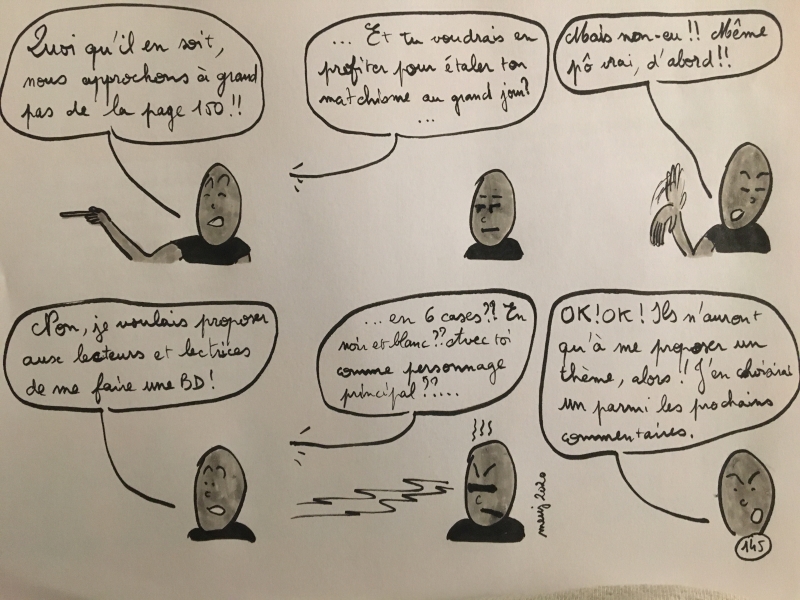 Quoi qu'il en soit,
nous approchons à grand
pas de la page 150!!
... Et tu voudrais en
profiter pour étaler ton
matchisme au grand jour?
...
Mais non-eu!! Même
pô vrai, d'abord!!
Non, je voulais proposer
aux lecteurs et lectrices
de me faire une BD!
...en 6 cases?? En
noir et blanc?? Avec toi
comme personnage
principal??.....
OK! OK! Ils n'auront
qu'à me proposer un
thème, alors! J'en choisirai
un parmi les prochains
commentaires.
2020
145